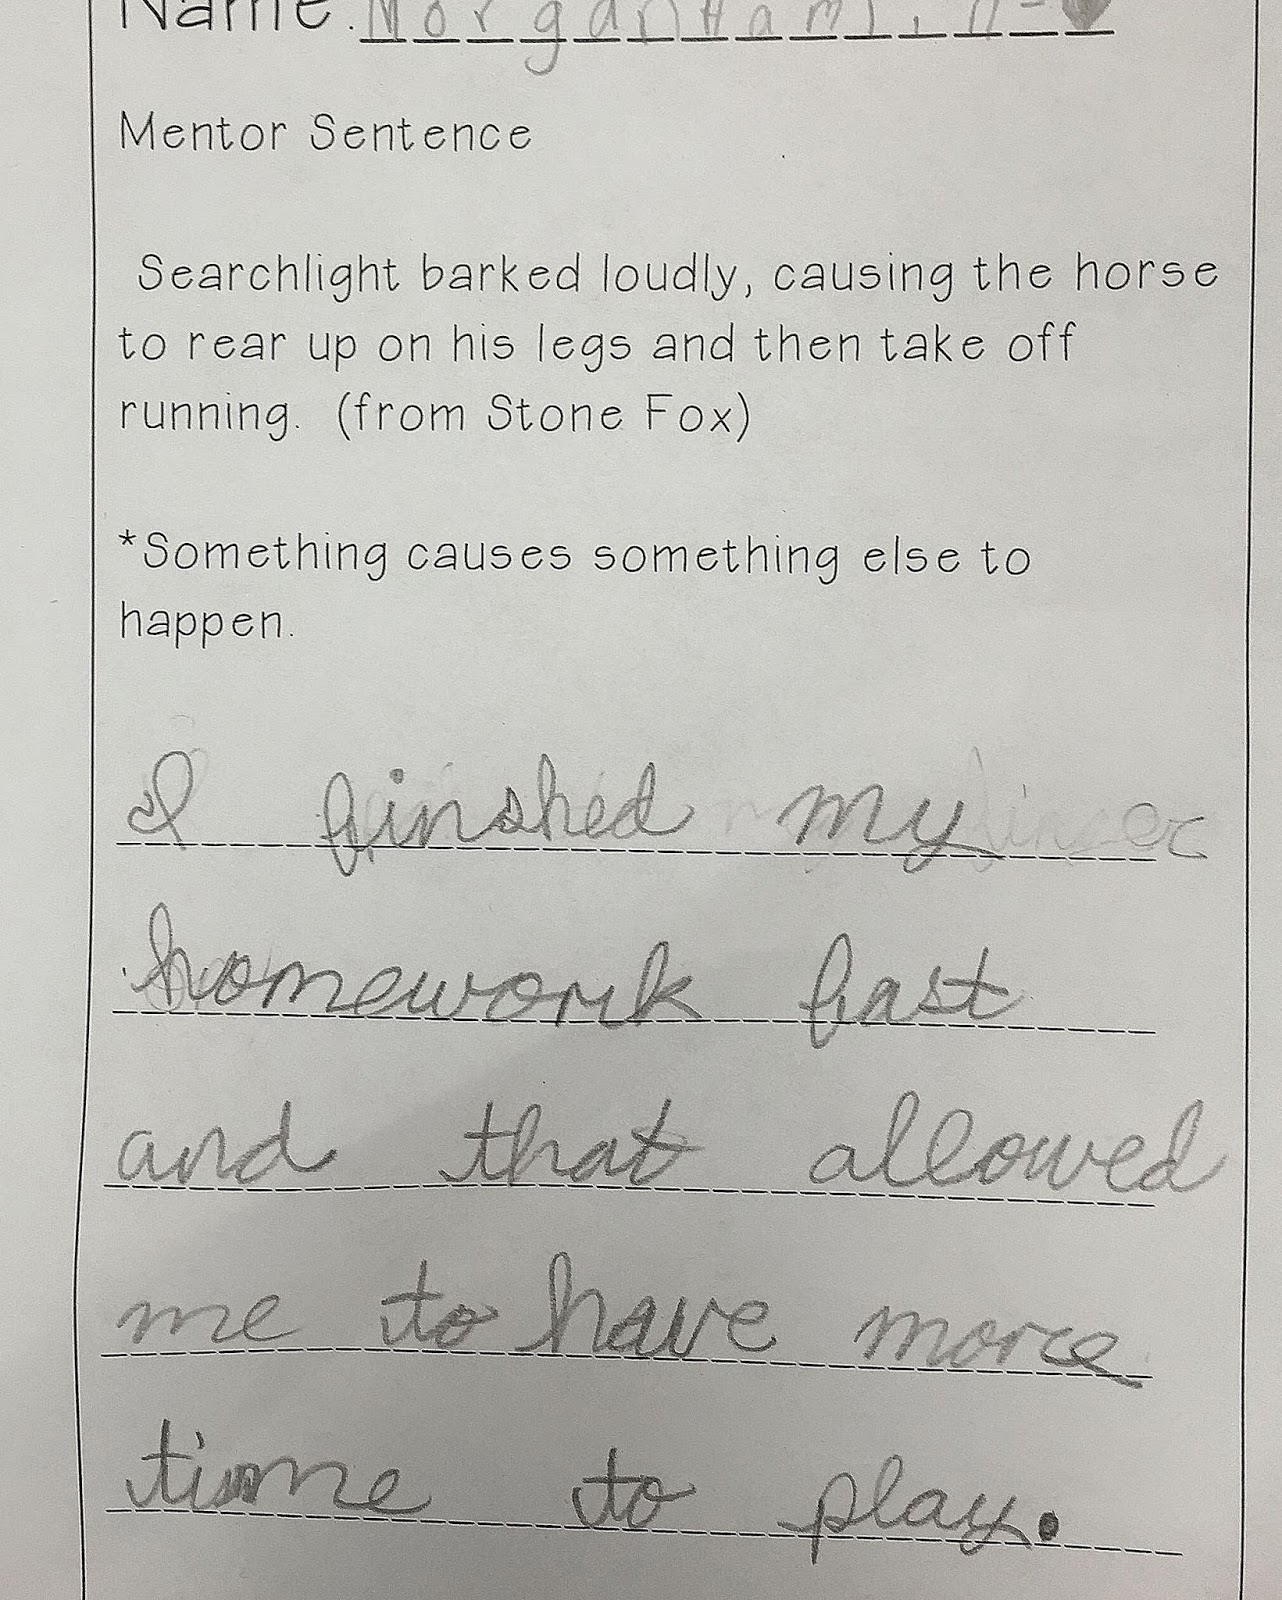 Name: Morgan Hamlin
Mentor Sentence
Searchlight barked loudly, causing the horse
to rear up on his legs and then take off
running. (from Stone Fox)
*Something causes something else to
happen.
I finshed my
homework fast
and that allowed
me to have more
time to play.